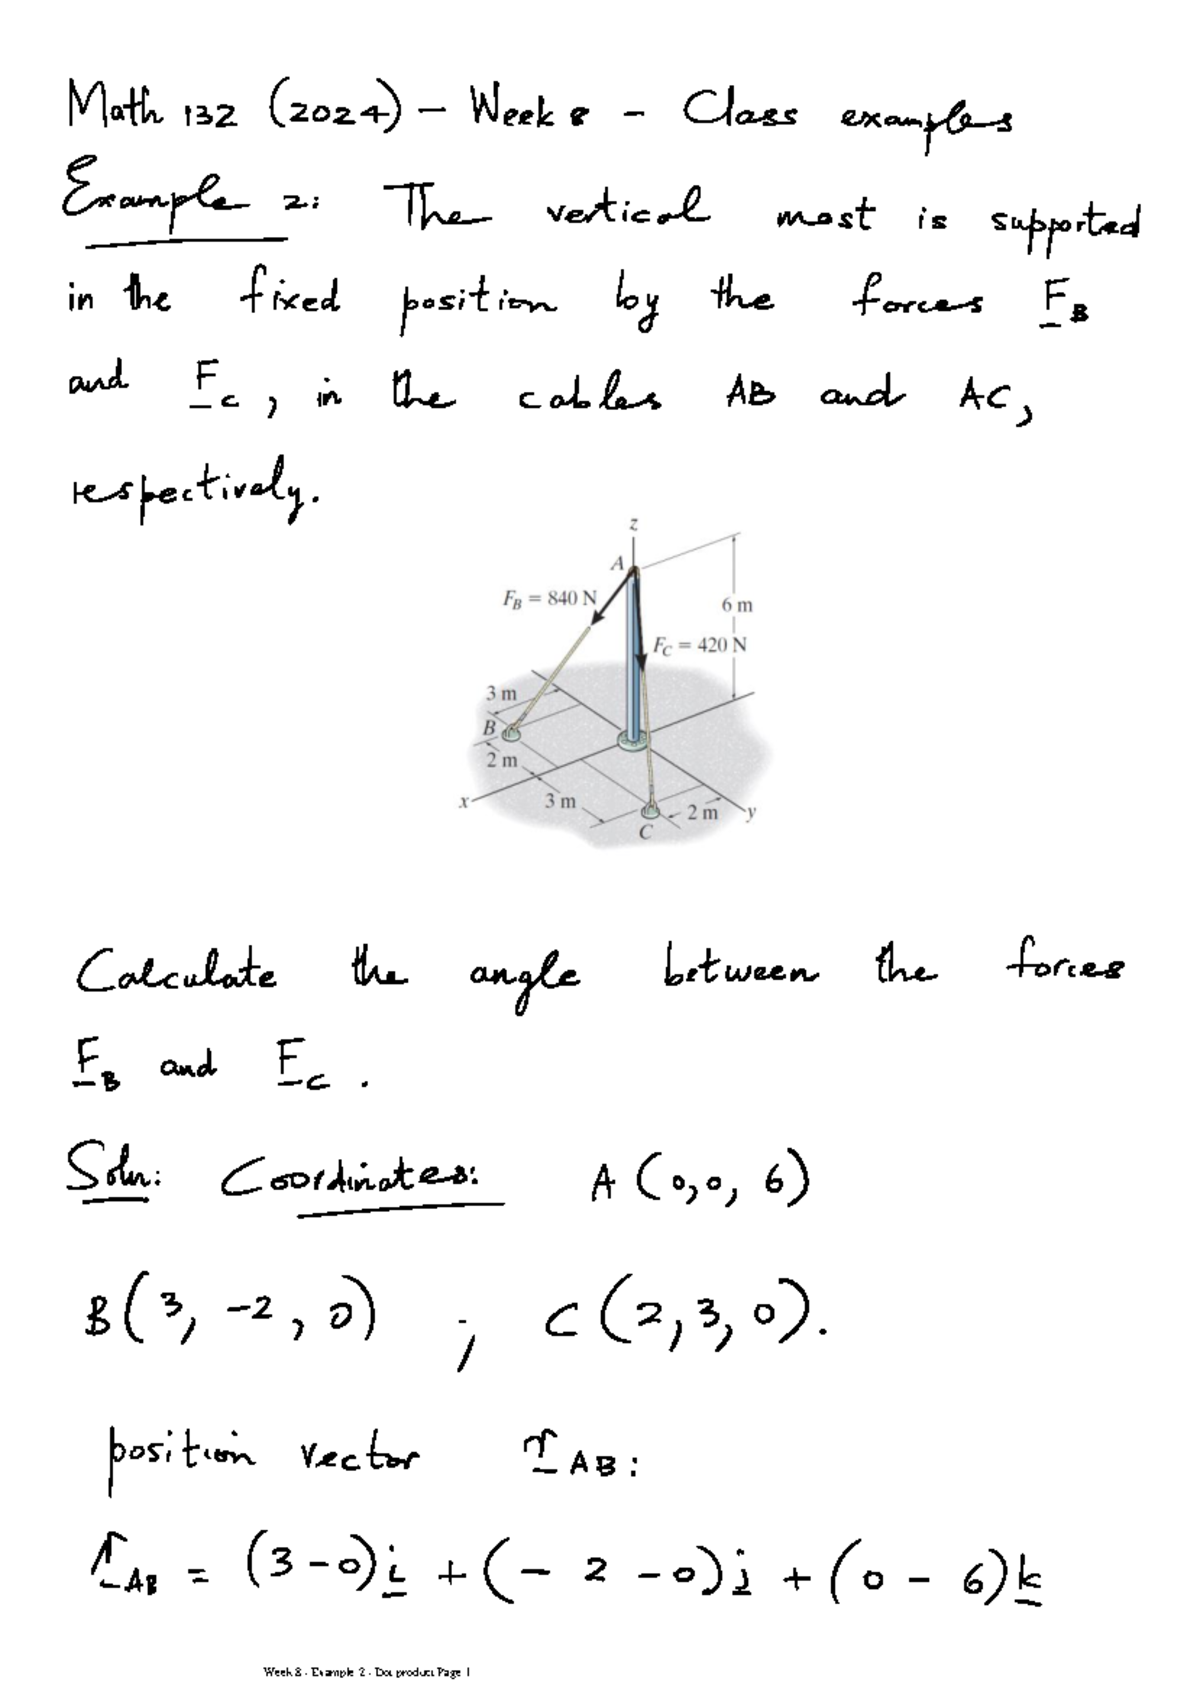 Math 132 (2024) - Week 8 - Class examples
Example 2: The vertical mast is supported
in the fixed position by the forces F_B
and F_C, in the cables AB and AC,
respectively.
z
A
F_B = 840 N
6 m
F_C = 420 N
3 m
B
2 m
x
3 m
2 m
y
C
Calculate the angle between the forces
F_B and F_C.
Soln: Coordinates: A (0,0, 6)
B(3, -2, 0) ; C (2,3,0).
position vector r_AB:
r_AB = (3-0)i + (- 2 -0)j + (0 - 6)k
Week 8 - Example 2 - Dot product Page 1